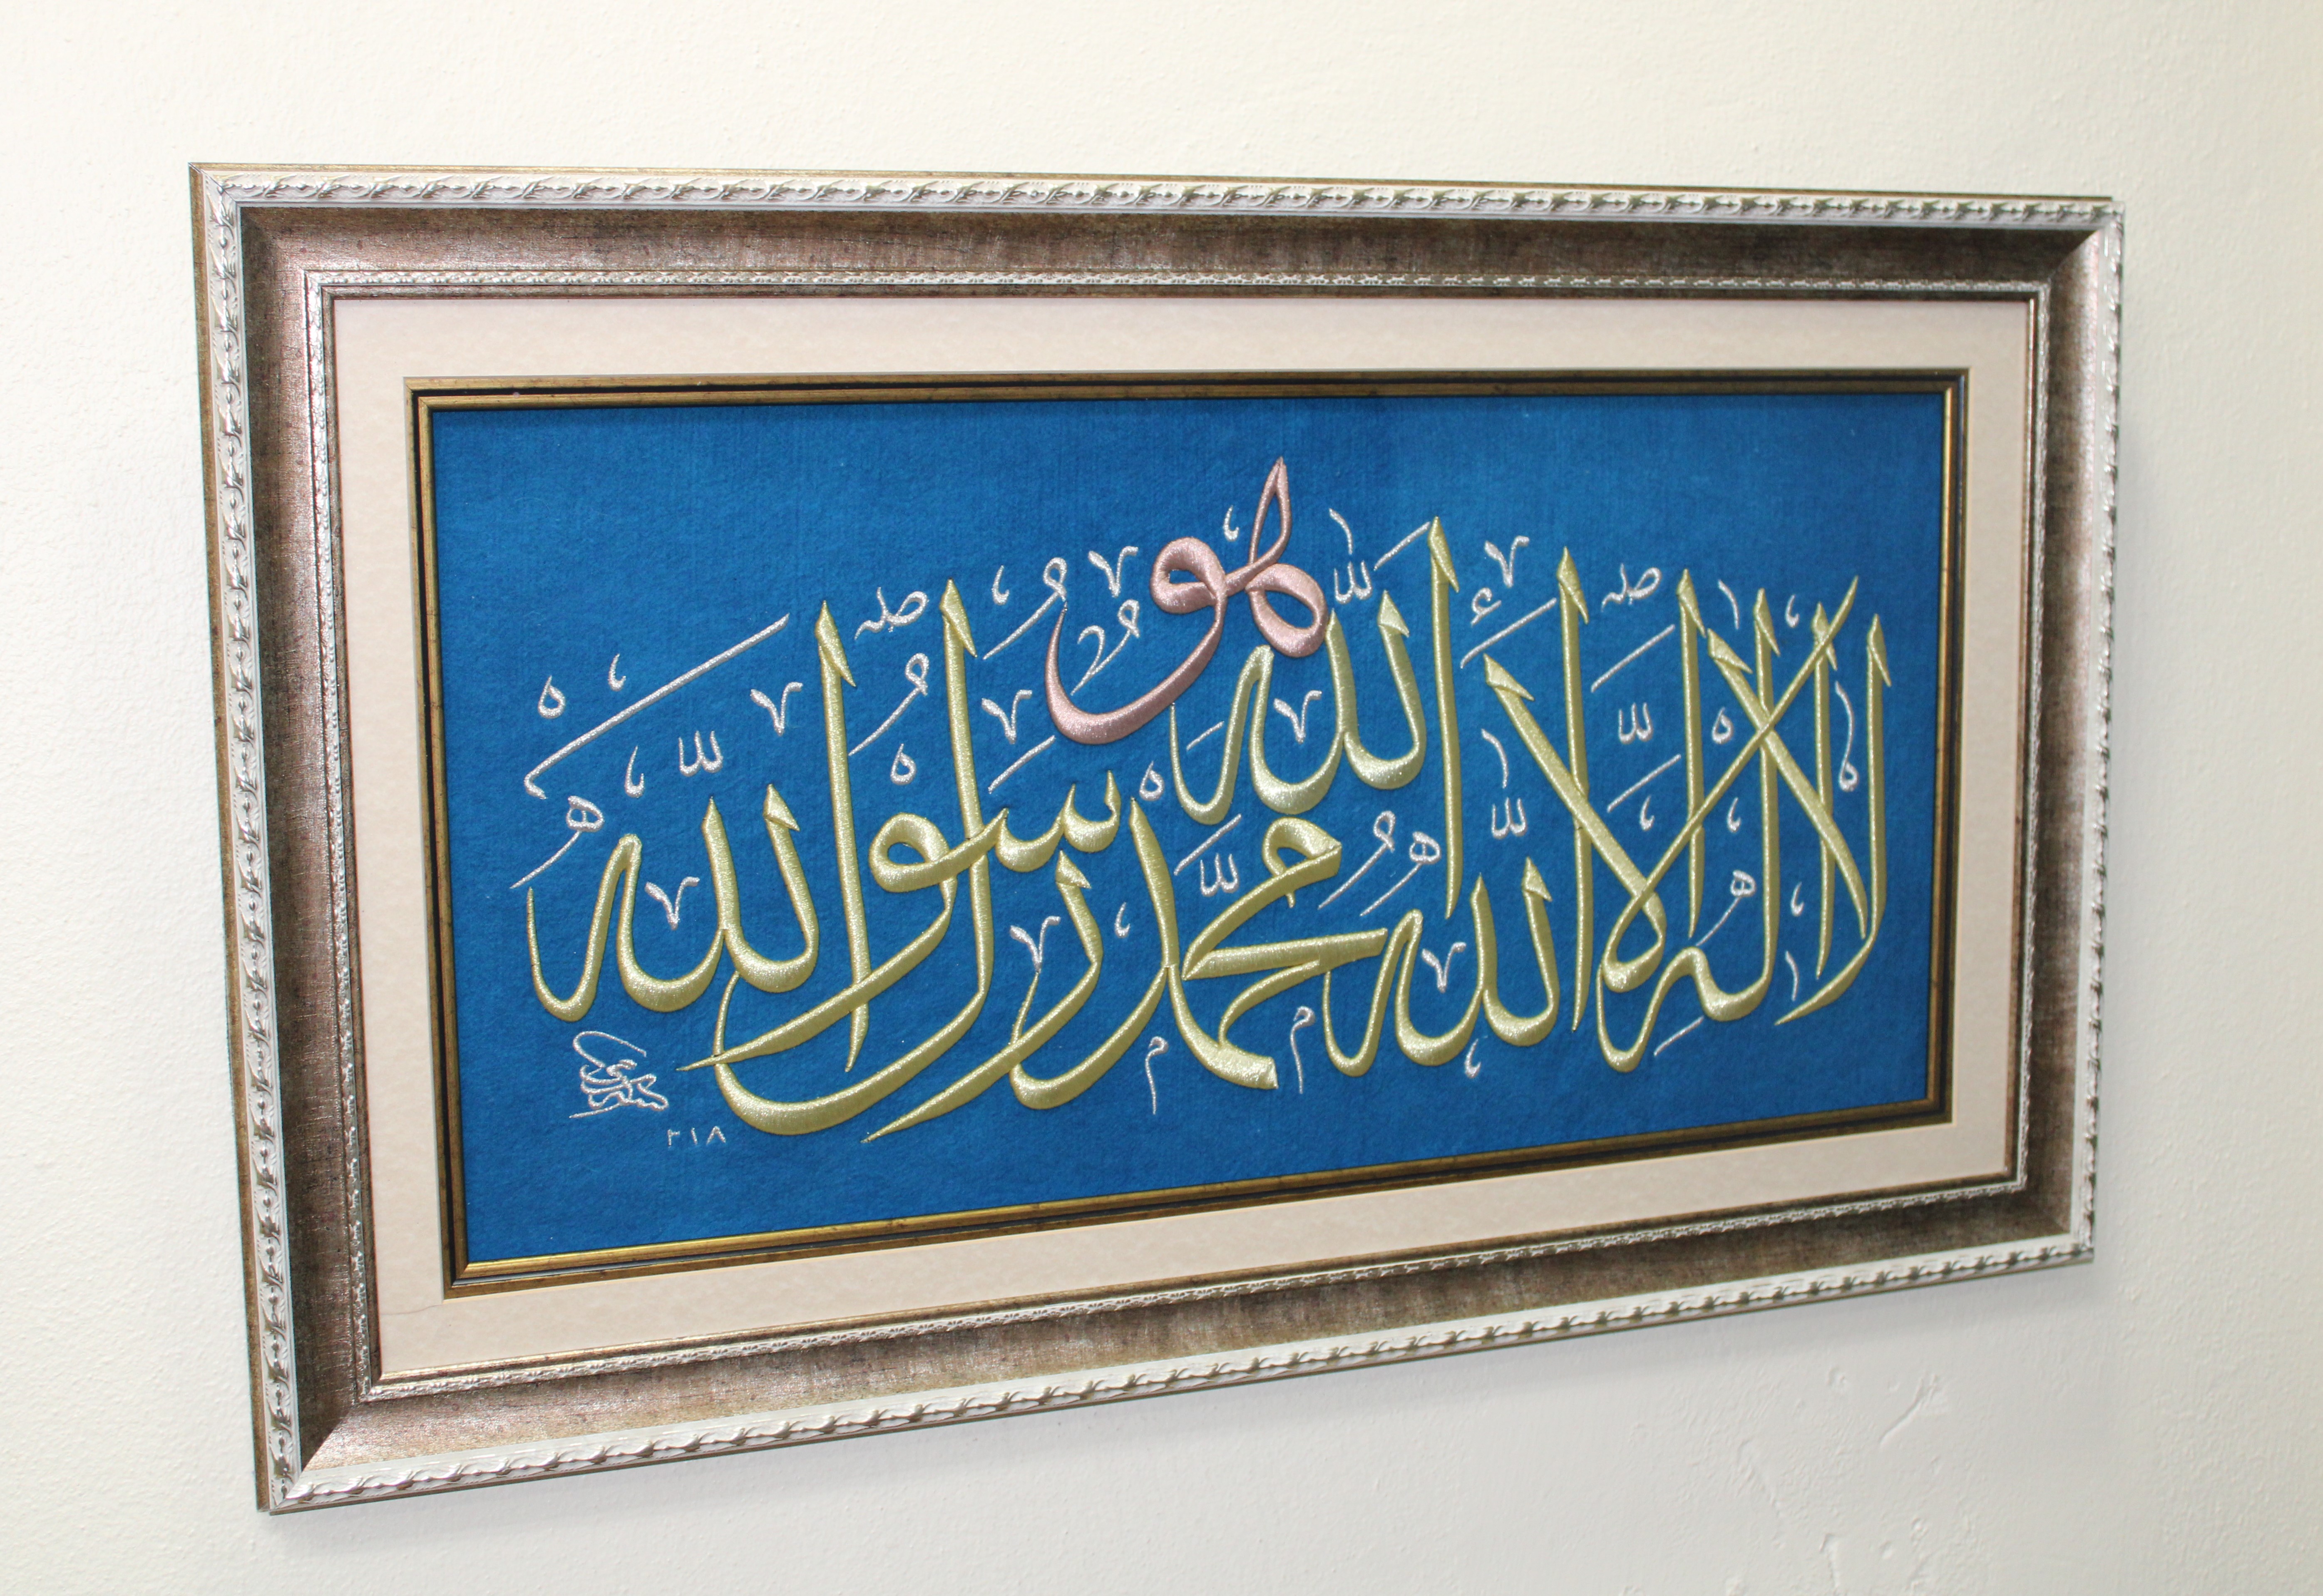 هو الله
لا اله الا الله محمد رسول الله
٢١٨